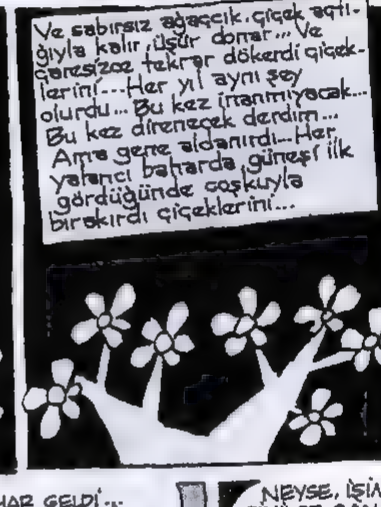 Ve sabırsız ağaçcık, çiçek açtı-
ğıyla kalır, üşür donar... Ve
çaresizce tekrar dökerdi çiçek-
lerini... Her yıl aynı şey
olurdu... Bu kez inanmıyacak...
Bu kez direnecek derdim...
Ama gene aldanırdı... Her
yalancı baharda güneşi ilk
gördüğünde coşkuyla
bırakırdı çiçeklerini...
HAR GELDİ...
NEYSE, İŞİN